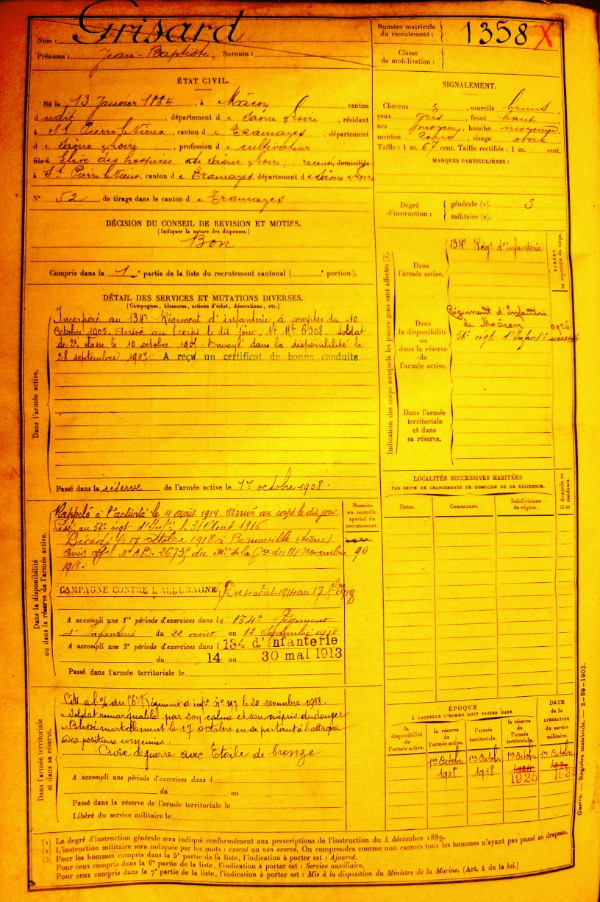 Nom : Grisard
Prénoms : Jean-Baptiste Surnom :
Numéro matricule
du recrutement : 1358 X
Classe
de mobilisation :
ÉTAT CIVIL.
Né le 13 Janvier 1884 à Mâcon canton
dudit, département d Saône & Loire, résidant
à St Pierre le Vieux, canton d e Tramayes, département
de Saône & Loire, profession de cultivateur
des hospices de Saône & Loire, domicilié
à St Pierre le Vieux, canton d e Tramayes, département de Saône & Loire
N° 52 de tirage dans le canton d e Tramayes
SIGNALEMENT.
Cheveux sourcils bruns
yeux gris front haut
nez moyen bouche moyenne
menton rond visage ovale
Taille : 1 m. 67 cent. Taille rectifiée : 1 m. cent.
MARQUES PARTICULIÈRES :
Degré
d'instruction : générale (1). 3
militaire (2).
DÉCISION DU CONSEIL DE REVISION ET MOTIFS.
(Indiquer la nature des dispenses.)
Bon
Compris dans la 1e partie de la liste du recrutement cantonal ( portion).
DÉTAIL DES SERVICES ET MUTATIONS DIVERSES.
(Campagnes, blessures, actions d'éclat, décorations, etc.)
Dans l'armée active.
Incorporé au 134e Régiment d'infanterie, à compter du 10
Octobre 1905. Arrivé au corps le dit jour, N° Mle 6308. Soldat
de 2e classe le 10 octobre 1905. Envoyé dans la disponibilité le
28 septembre 1907. A reçu un certificat de bonne conduite
Passé dans la réserve de l'armée active le 1er octobre 1908.
Indication des corps auxquels les jeunes gens sont affectés
Dans
l'armée active.
134e Régt d'infanterie
Dans
la disponibilité
ou dans la réserve
de l'armée active.
Régiment d'Infanterie
de Mâcon
56e régt d'Infant
Dans
l'armée territoriale
et dans
sa réserve.
LOCALITÉS SUCCESSIVES HABITÉES
PAR SUITE DE CHANGEMENTS DE DOMICILE OU DE RÉSIDENCE.
Dates. Communes. Subdivisions
de région.
Dans la disponibilité
ou dans la réserve de l'armée active.
Numéro
au contrôle
spécial du
recrutement.
90
Rappelé à l'activité le 4 août 1914. Arrivé au corps le dit jour
Passé au 56e régt d'Infie le 31 Août 1916
Décédé le 17 octobre 1918 à Bernoville (Aisne)
avis offel N° AB. 2673 du Mre de la Gre du 14 novembre
1918.
CAMPAGNE CONTRE L'ALLEMAGNE Du 4 août 1914 au 17 8bre 1918
A accompli une 1e période d'exercices dans le 134e Régiment
d'Infanterie du 22 août au
A accompli une 2e période d'exercices dans le 134 d'infanterie
du 14 au 30 mai 1913
Passé dans l'armée territoriale le
Dans l'armée territoriale
et dans sa réserve.
Cité à l'o/ du 56e Régiment d'infie N° 197 le 20 novembre 1918.
Soldat remarquable par son calme et son mépris du danger
Blessé mortellement le 17 octobre en se portant à l'attaque
des positions ennemies.
Croix de guerre avec Etoile de bronze
A accompli une période d'exercices dans l
du au
Passé dans la réserve de l'armée territoriale le
Libéré du service militaire le
ÉPOQUE
À LAQUELLE L'HOMME DOIT PASSER DANS
DATE
de la
LIBÉRATION
du service
militaire.
la
disponibilité
de
l'armée active.
la réserve
de
l'armée active.
l'armée
territoriale.
la réserve
de
l'armée
territoriale.
1er Octobre
1908
1er Octobre
1918
1er Octobre
1925
1er Octobre
Guerre. — Registre matricule. — 2-89-1903.
1 Le degré d'instruction générale sera indiqué conformément aux prescriptions de l'instruction du 4 décembre 1889.
2 L'instruction militaire sera indiquée par les mots : exercé ou non exercé. On comprendra comme non exercés tous les hommes n'ayant pas passé au drapeau.
3 Pour les hommes compris dans la 5e partie de la liste, l'indication à porter est : Ajourné.
Pour ceux compris dans la 6e partie de la liste, l'indication à porter est : Service auxiliaire.
Pour ceux compris dans la 7e partie de la liste, l'indication à porter est : Mis à la disposition du Ministre de la Marine. (Art. 4 de la loi.)